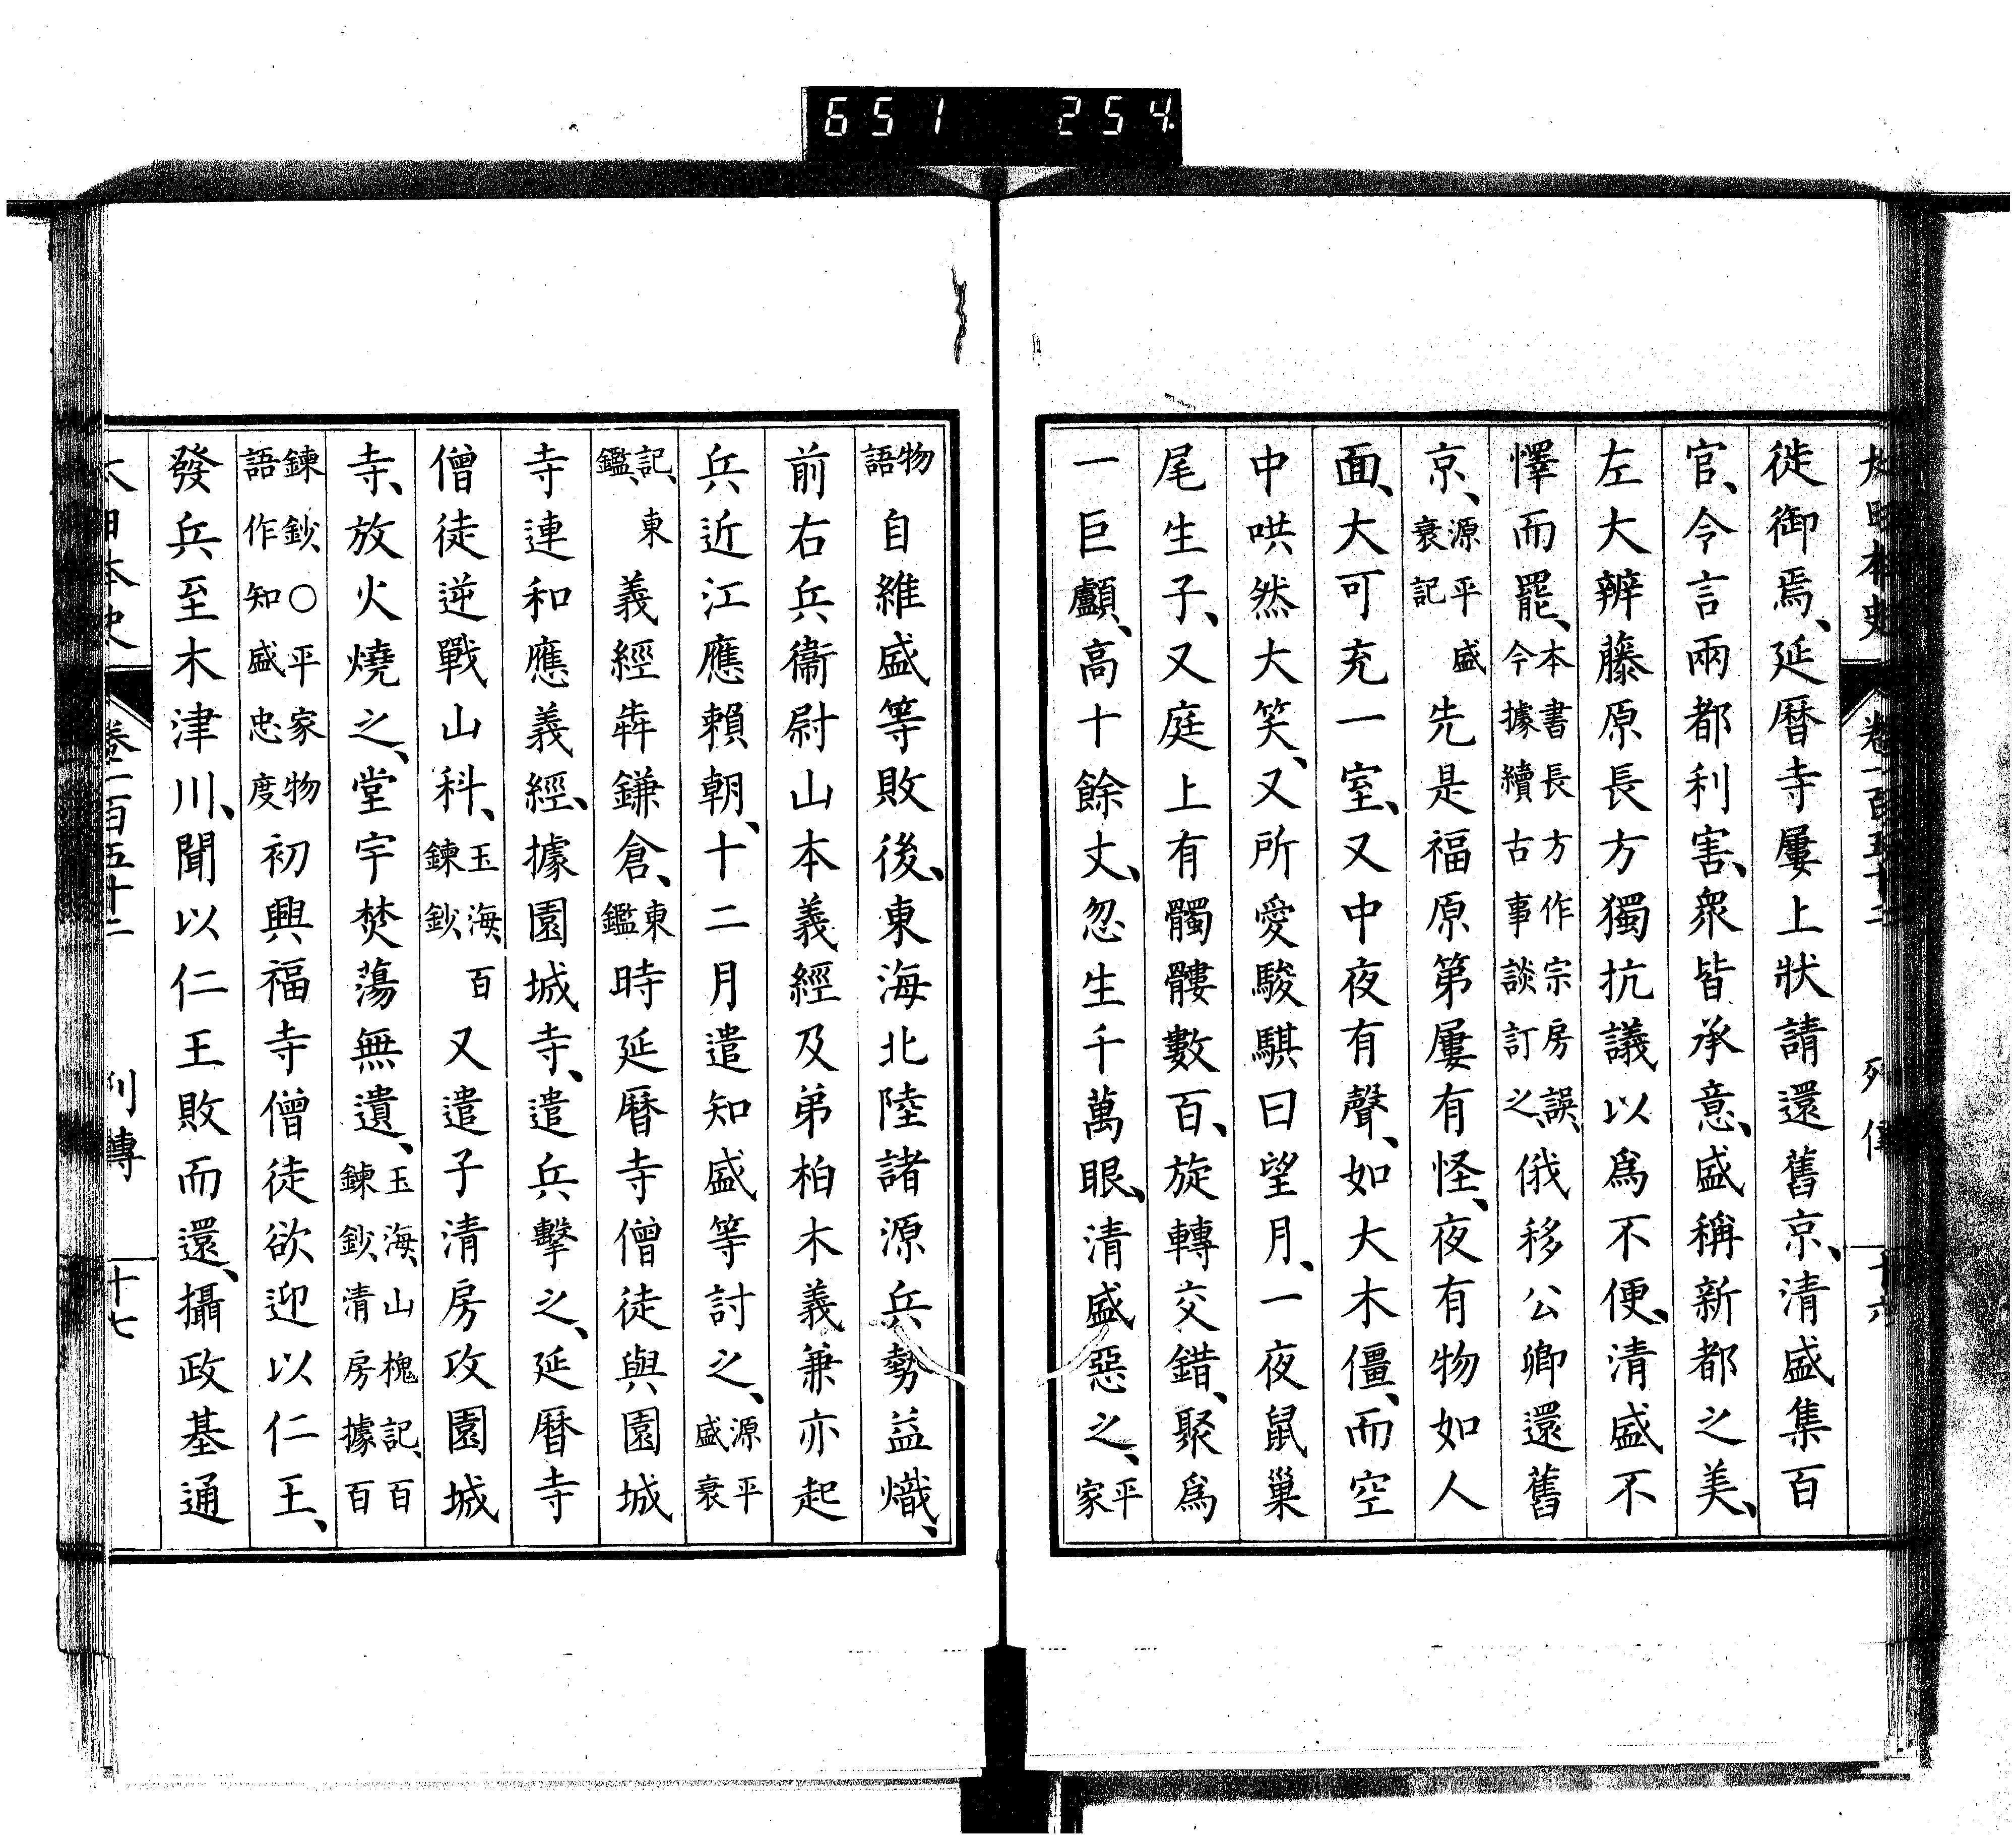 651 254
大日本史 卷一百五十二 列傳 十六
徙御焉、延曆寺屢上狀請還舊京、淸盛集百
官、令言兩都利害、衆皆承意、盛稱新都之美、
左大辨藤原長方獨抗議以爲不便、淸盛不
懌而罷、本書長方作宗房誤、今據續古事談訂之、俄移公卿還舊
京、源平盛衰記先是福原第屢有怪、夜有物如人
面、大可充一室、又中夜有聲、如大木僵、而空
中哄然大笑、又所愛駿騏曰望月、一夜鼠巢
尾生子、又庭上有髑髏數百、旋轉交錯、聚爲
一巨顱、高十餘丈、忽生千萬眼、淸盛惡之、平家
物語自維盛等敗後、東海北陸諸源兵勢益熾、
前右兵衞尉山本義經及弟柏木義兼亦起
兵近江應賴朝、十二月遣知盛等討之、源平盛衰
記、東鑑、義經犇鎌倉、東鑑時延曆寺僧徒與園城
寺連和應義經、據園城寺、遣兵擊之、延曆寺
僧徒逆戰山科、玉海、百鍊鈔、又遣子淸房攻園城
寺、放火燒之、堂宇焚蕩無遺、玉海、山槐記、百鍊鈔、淸房據百
鍊鈔、○平家物語作知盛忠度初興福寺僧徒欲迎以仁王、
發兵至木津川、聞以仁王敗而還、攝政基通
大日本史 卷一百五十二 列傳 十七